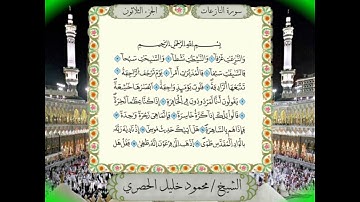 سورة النازعات
الجزء الثلاثون
بِسْمِ اللَّهِ الرَّحْمَٰنِ الرَّحِيمِ
وَالنَّازِعَاتِ غَرْقًا ۝ وَالنَّاشِطَاتِ نَشْطًا ۝ وَالسَّابِحَاتِ سَبْحًا ۝
فَالسَّابِقَاتِ سَبْقًا ۝ فَالْمُدَبِّرَاتِ أَمْرًا ۝ يَوْمَ تَرْجُفُ الرَّاجِفَةُ ۝
تَتْبَعُهَا الرَّادِفَةُ ۝ قُلُوبٌ يَوْمَئِذٍ وَاجِفَةٌ ۝ أَبْصَارُهَا خَاشِعَةٌ ۝
يَقُولُونَ أَإِنَّا لَمَرْدُودُونَ فِي الْحَافِرَةِ ۝ أَإِذَا كُنَّا عِظَامًا نَّخِرَةً ۝
قَالُوا تِلْكَ إِذًا كَرَّةٌ خَاسِرَةٌ ۝ فَإِنَّمَا هِيَ زَجْرَةٌ وَاحِدَةٌ ۝
فَإِذَا هُم بِالسَّاهِرَةِ ۝ هَلْ أَتَاكَ حَدِيثُ مُوسَىٰ ۝ إِذْ نَادَاهُ رَبُّهُ
بِالْوَادِ الْمُقَدَّسِ طُوًى ۝ اذْهَبْ إِلَىٰ فِرْعَوْنَ إِنَّهُ طَغَىٰ ۝ فَقُلْ هَل
الشيخ / محمود خليل الحصري